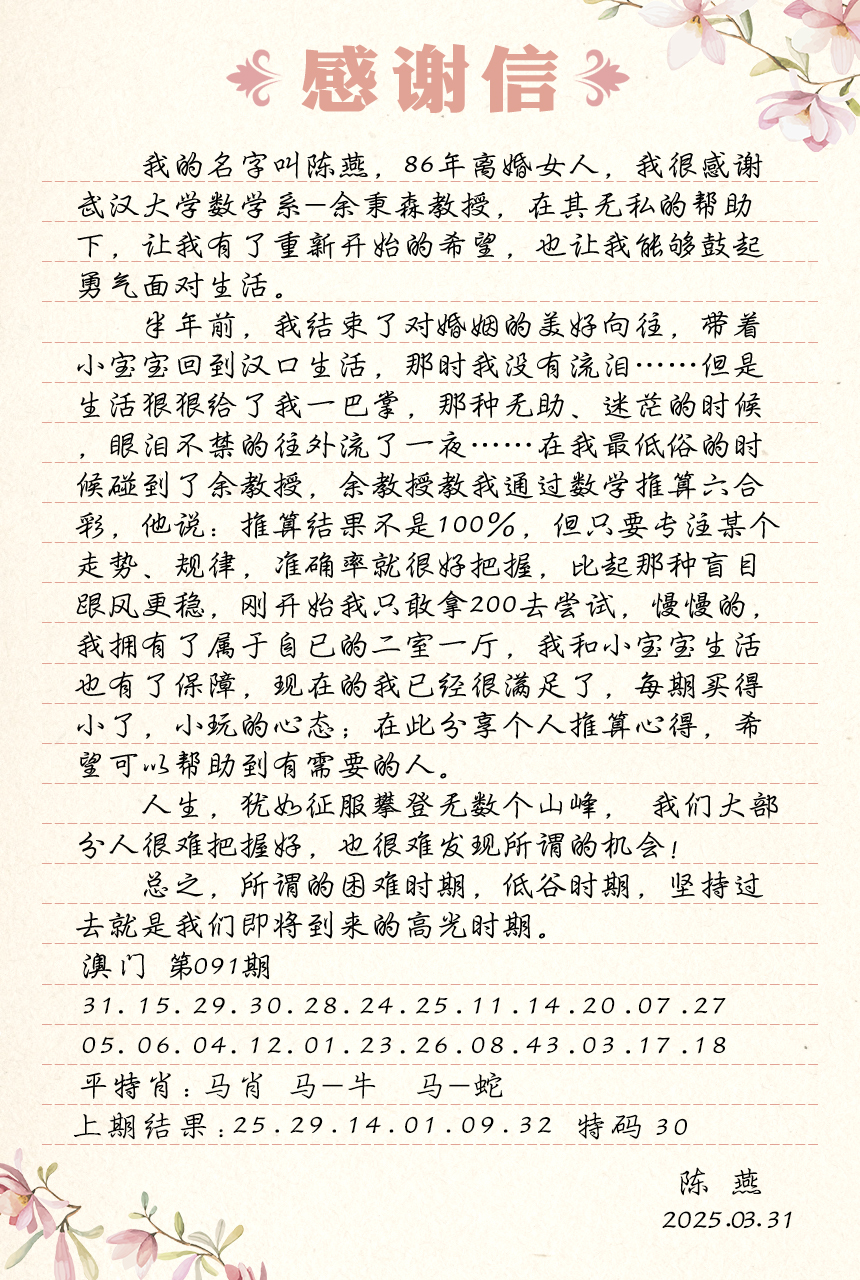 感谢信
我的名字叫陈燕，86年离婚女人，我很感谢
武汉大学数学系—余秉森教授，在其无私的帮助
下，让我有了重新开始的希望，也让我能够鼓起
勇气面对生活。
半年前，我结束了对婚姻的美好向往，带着
小宝宝回到汉口生活，那时我没有流泪……但是
生活狠狠给了我一巴掌，那种无助、迷茫的时候
，眼泪不禁的往外流了一夜……在我最低俗的时
候碰到了余教授，余教授教我通过数学推算六合
彩，他说：推算结果不是100%，但只要专注某个
走势、规律，准确率就很好把握，比起那种盲目
跟风更稳，刚开始我只敢拿200去尝试，慢慢的，
我拥有了属于自已的二室一厅，我和小宝宝生活
也有了保障，现在的我已经很满足了，每期买得
小了，小玩的心态；在此分享个人推算心得，希
望可以帮助到有需要的人。
人生，犹如征服攀登无数个山峰， 我们大部
分人很难把握好，也很难发现所谓的机会！
总之，所谓的困难时期，低谷时期，坚持过
去就是我们即将到来的高光时期。
澳门 第091期
31.15.29.30.28.24.25.11.14.20.07.27
05.06.04.12.01.23.26.08.43.03.17.18
平特肖：马肖 马—牛 马—蛇
上期结果：25.29.14.01.09.32 特码 30
陈 燕
2025.03.31